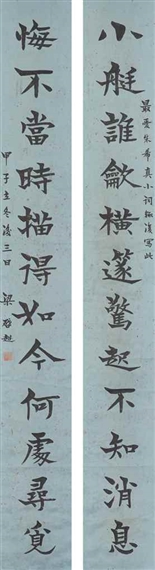 小艇誰龡橫篴驚起不知消息
最愛朱希真小詞輒復寫此
悔不當時描得如今何處尋覓
甲子立冬後三日 梁啟超